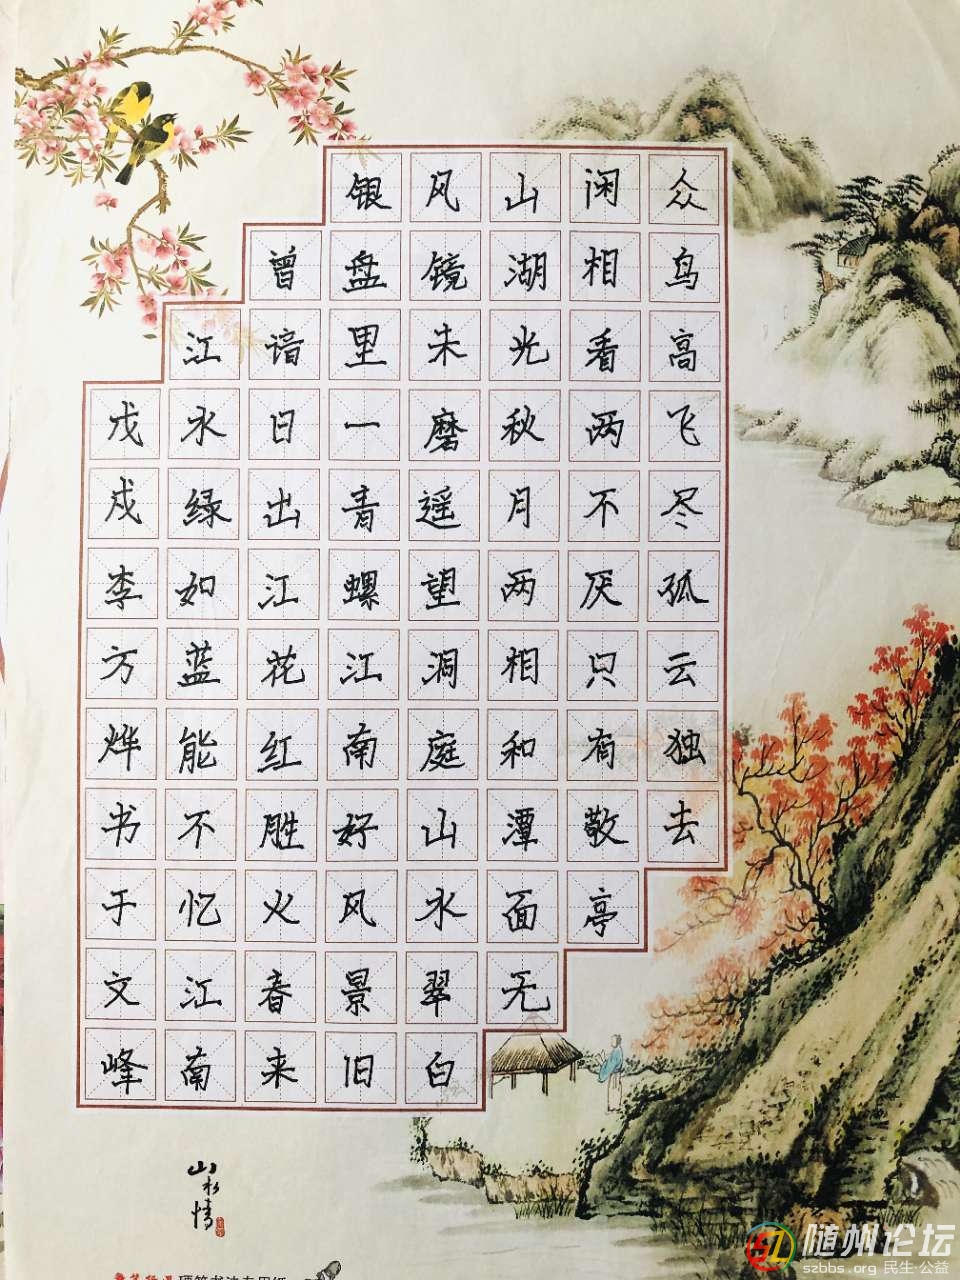 众鸟高飞尽孤云独去
闲相看两不厌只有敬亭
山湖光秋月两相和潭面无
风镜朱磨遥望洞庭山水翠白
银盘里一青螺江南好风景旧
曾谙日出江花红胜火春来
江水绿如蓝能不忆江南
戊戌李方烨书于文峰
山水情
硬笔书法专用纸
随州论坛
szbbs.org 民生·公益